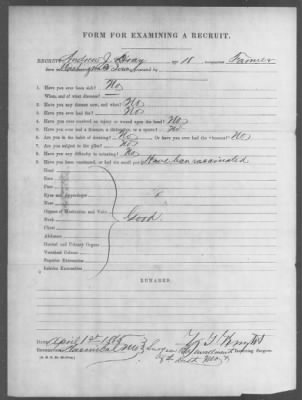 FORM FOR EXAMINING A RECRUIT.
RECRUIT Andrew J. Gray age 18 occupation Farmer
born in Washington Co. Iowa
1. Have you ever been sick? No
When, and of what disease?
2. Have you any disease now, and what? No
3. Have you ever had fits? No
4. Have you ever received an injury or wound upon the head? No
5. Have you ever had a fracture, a dislocation, or a sprain? No
6. Are you in the habit of drinking? No Or have you ever had the "horrors?" No
7. Are you subject to the piles? No
8. Have you any difficulty in urinating? No
9. Have you been vaccinated, or had the small pox? Have been vaccinated
Head
Face
Eyes and Appendages
Nose
Ears
Organs of Mastication and Voice
Neck
Chest
Good
Abdomen
Genital and Urinary Organs
Vertebral Column
Superior Extremities
Inferior Extremities
REMARKS.
DATE April 1st 1865
RENDEZVOUS Hannibal Mo
Surgeon
Inspecting Surgeon.
8th Dist. Mo.